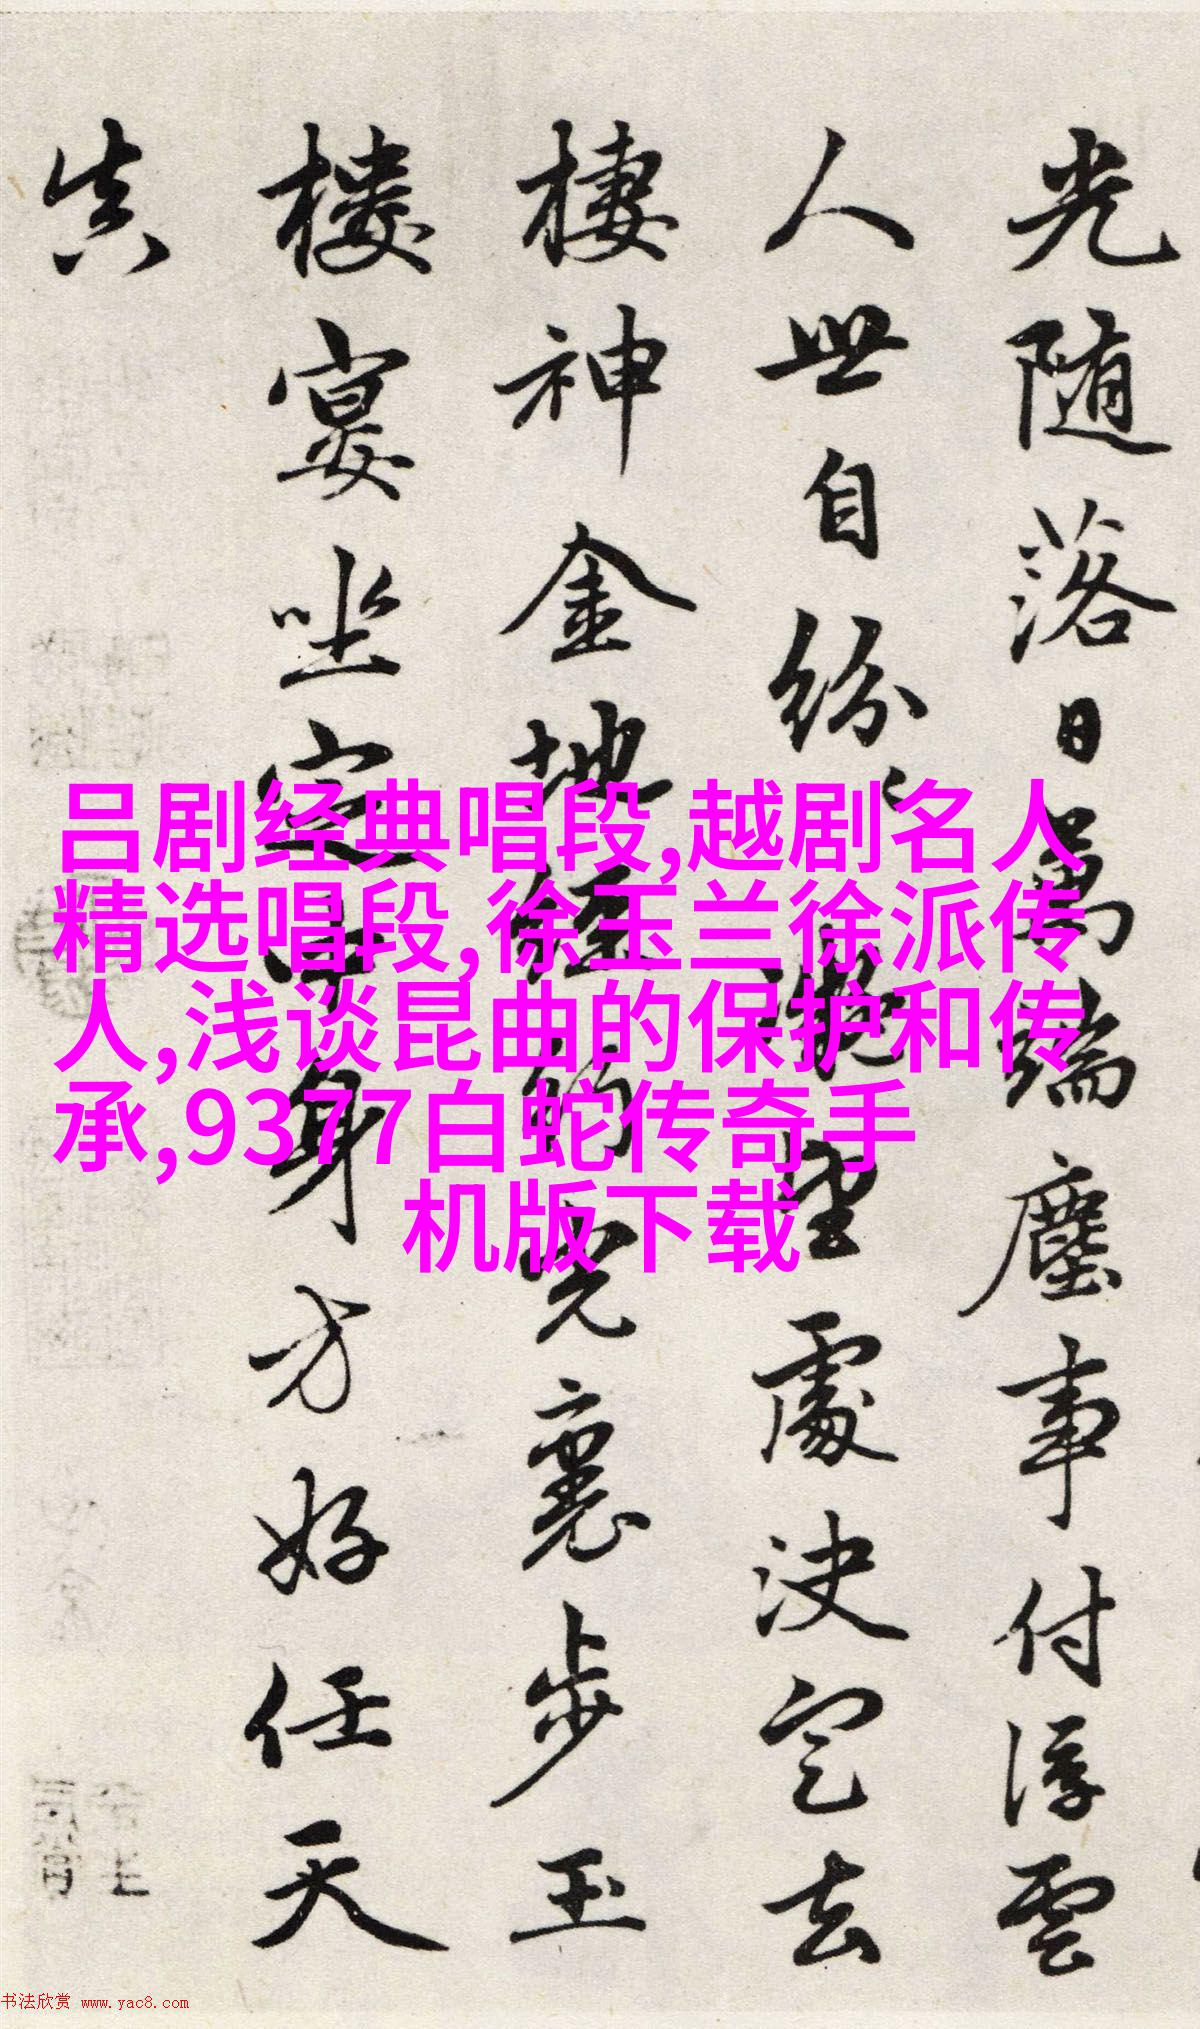 光随落日萬端塵事付浮雲
人世自紛處決定去
棲神金地經光裏步玉
楼宴坐定中身方好任天
真
吕剧经典唱段,越剧名人
精选唱段,徐玉兰徐派传
人,浅谈昆曲的保护和传
承,9377白蛇传奇手
机版下载
书法欣赏 www.yac8.com